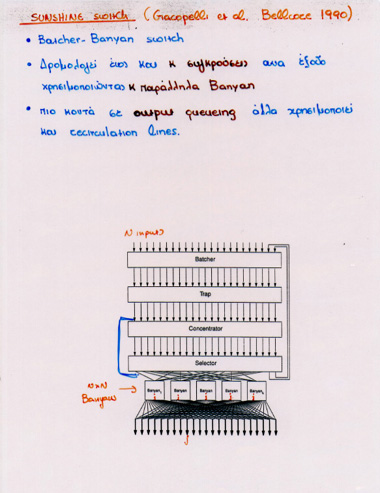 SUNSHINE SWITCH (Giacopelli et al. Bellcore 1990)
• Batcher-Banyan switch
• Δρομολογεί έως και κ συγκρούσεις ανα έξοδο
χρησιμοποιώντας κ παράλληλα Banyan
• πιο κοντά σε output queueing άλλα χρησιμοποιεί
και recirculation lines.
N inputs
Batcher
Trap
Concentrator
Selector
N×N
Banyans
Banyan Banyan Banyan Banyan Banyan